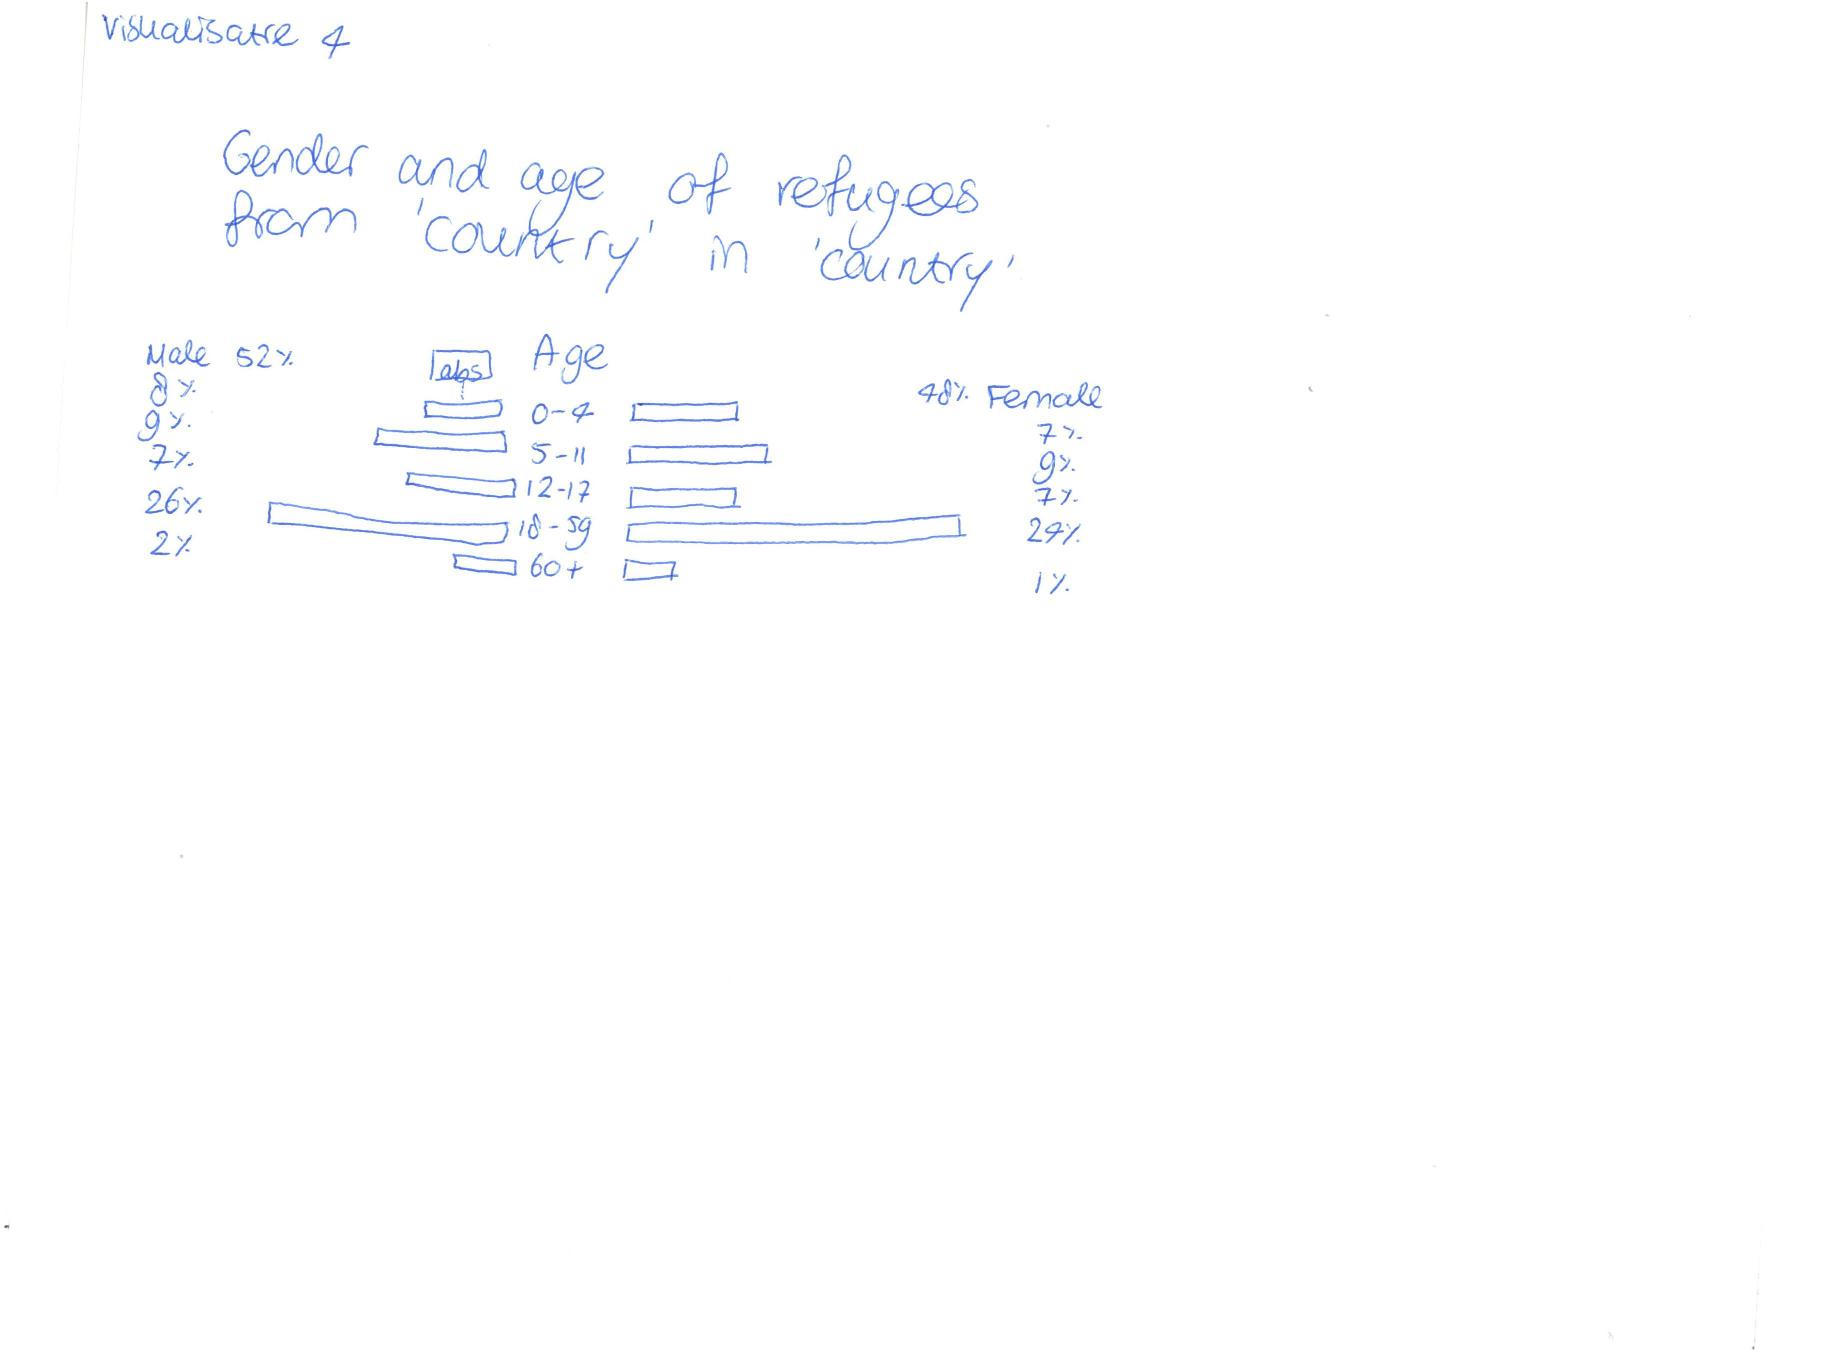 Visualisatie 4
Gender and age of refugees
from 'country' in 'country'
Male 52%
abs
Age
48% Female
8%
0-4
7%
9%
5-11
9%
7%
12-17
7%
26%
18-59
24%
2%
60+
1%